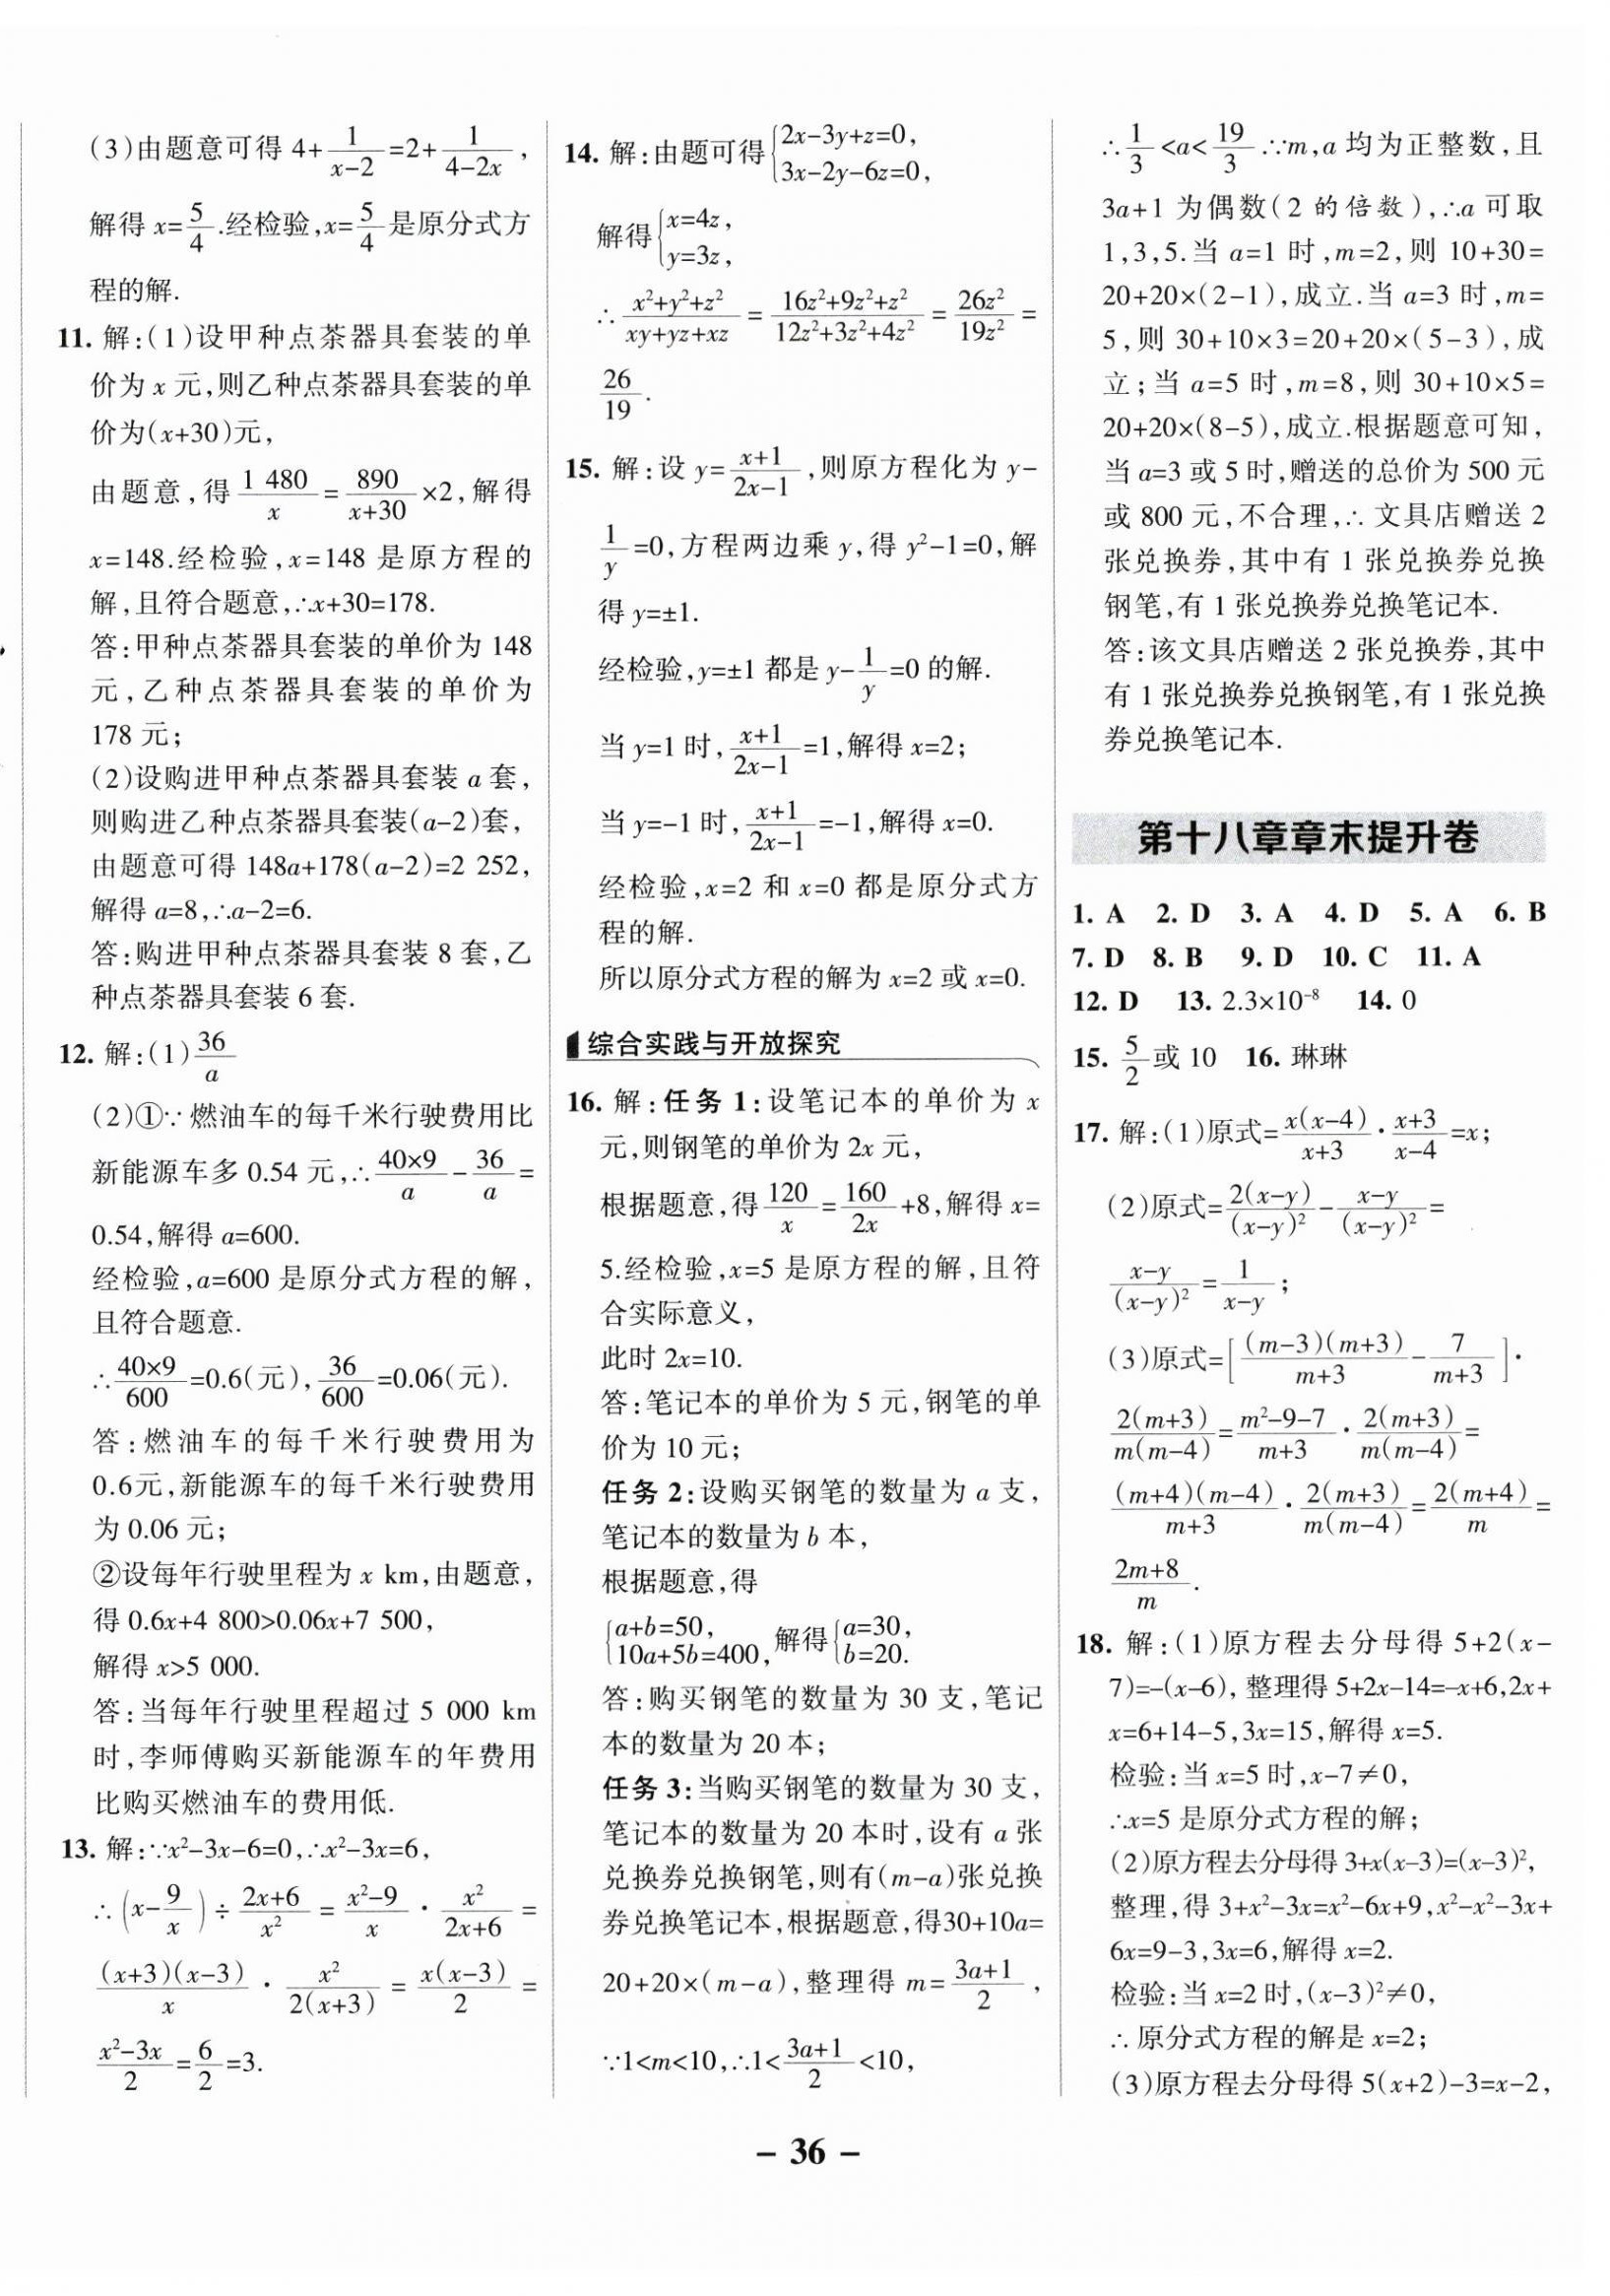 (3)由题意可得 4+1/(x-2)=2+1/(4-2x),
解得 x=5/4.经检验,x=5/4是原分式方
程的解.
11. 解:(1)设甲种点茶器具套装的单
价为 x 元,则乙种点茶器具套装的单
价为(x+30)元,
由题意,得 1 480/x=890/(x+30)×2,解得
x=148.经检验,x=148 是原方程的
解,且符合题意,∴x+30=178.
答:甲种点茶器具套装的单价为 148
元,乙种点茶器具套装的单价为
178 元;
(2)设购进甲种点茶器具套装 a 套,
则购进乙种点茶器具套装(a-2)套,
由题意可得 148a+178(a-2)=2 252,
解得 a=8,∴a-2=6.
答:购进甲种点茶器具套装 8 套,乙
种点茶器具套装 6 套.
12. 解:(1)36/a
(2)①∵燃油车的每千米行驶费用比
新能源车多 0.54 元,∴40×9/a-36/a=
0.54,解得 a=600.
经检验,a=600 是原分式方程的解,
且符合题意.
∴40×9/600=0.6(元),36/600=0.06(元).
答:燃油车的每千米行驶费用为
0.6元,新能源车的每千米行驶费用
为 0.06 元;
②设每年行驶里程为 x km,由题意,
得 0.6x+4 800>0.06x+7 500,
解得 x>5 000.
答:当每年行驶里程超过 5 000 km
时,李师傅购买新能源车的年费用
比购买燃油车的费用低.
13. 解:∵x²-3x-6=0,∴x²-3x=6,
∴(x-9/x)÷(2x+6)/x²=(x²-9)/x·x²/(2x+6)=
(x+3)(x-3)/x·x²/2(x+3)=x(x-3)/2=
(x²-3x)/2=6/2=3.
14. 解:由题可得{2x-3y+z=0,
3x-2y-6z=0,
解得{x=4z,
y=3z,
∴(x²+y²+z²)/(xy+yz+xz)=(16z²+9z²+z²)/(12z²+3z²+4z²)=26z²/19z²=
26/19.
15. 解:设 y=(x+1)/(2x-1),则原方程化为 y-
1/y=0,方程两边乘 y,得 y²-1=0,解
得 y=±1.
经检验,y=±1 都是 y-1/y=0 的解.
当 y=1 时,(x+1)/(2x-1)=1,解得 x=2;
当 y=-1 时,(x+1)/(2x-1)=-1,解得 x=0.
经检验,x=2 和 x=0 都是原分式方
程的解.
所以原分式方程的解为 x=2 或 x=0.
综合实践与开放探究
16. 解:任务 1:设笔记本的单价为 x
元,则钢笔的单价为 2x 元,
根据题意,得 120/x=160/2x+8,解得 x=
5.经检验,x=5 是原方程的解,且符
合实际意义,
此时 2x=10.
答:笔记本的单价为 5 元,钢笔的单
价为 10 元;
任务 2:设购买钢笔的数量为 a 支,
笔记本的数量为 b 本,
根据题意,得
{a+b=50,
10a+5b=400,解得{a=30,
b=20.
答:购买钢笔的数量为 30 支,笔记
本的数量为 20 本;
任务 3:当购买钢笔的数量为 30 支,
笔记本的数量为 20 本时,设有 a 张
兑换券兑换钢笔,则有(m-a)张兑换
券兑换笔记本,根据题意,得30+10a=
20+20×(m-a),整理得 m=(3a+1)/2,
∵1<m<10,∴1<(3a+1)/2<10,
∴1/3<a<19/3∵m,a 均为正整数,且
3a+1 为偶数(2 的倍数),∴a 可取
1,3,5.当 a=1 时,m=2,则 10+30=
20+20×(2-1),成立.当 a=3 时,m=
5,则 30+10×3=20+20×(5-3),成
立;当 a=5 时,m=8,则 30+10×5=
20+20×(8-5),成立.根据题意可知,
当 a=3 或 5 时,赠送的总价为 500 元
或 800 元,不合理,∴文具店赠送 2
张兑换券,其中有 1 张兑换券兑换
钢笔,有 1 张兑换券兑换笔记本.
答:该文具店赠送 2 张兑换券,其中
有 1 张兑换券兑换钢笔,有 1 张兑换
券兑换笔记本.
第十八章章末提升卷
1. A 2. D 3. A 4. D 5. A 6. B
7. D 8. B 9. D 10. C 11. A
12. D 13. 2.3×10⁻⁸ 14. 0
15. 5/2或 10 16. 琳琳
17. 解:(1)原式=x(x-4)/(x+3)·(x+3)/(x-4)=x;
(2)原式=2(x-y)/(x-y)²-(x-y)/(x-y)²=
(x-y)/(x-y)²=1/(x-y);
(3)原式=[(m-3)(m+3)/(m+3)-7/(m+3)]·
2(m+3)/m(m-4)=(m²-9-7)/(m+3)·2(m+3)/m(m-4)=
(m+4)(m-4)/(m+3)·2(m+3)/m(m-4)=2(m+4)/m=
(2m+8)/m.
18. 解:(1)原方程去分母得 5+2(x-
7)=-(x-6),整理得 5+2x-14=-x+6,2x+
x=6+14-5,3x=15,解得 x=5.
检验:当 x=5 时,x-7≠0,
∴x=5 是原分式方程的解;
(2)原方程去分母得 3+x(x-3)=(x-3)²,
整理,得 3+x²-3x=x²-6x+9,x²-x²-3x+
6x=9-3,3x=6,解得 x=2.
检验:当 x=2 时,(x-3)²≠0,
∴原分式方程的解是 x=2;
(3)原方程去分母得 5(x+2)-3=x-2,
- 36 -